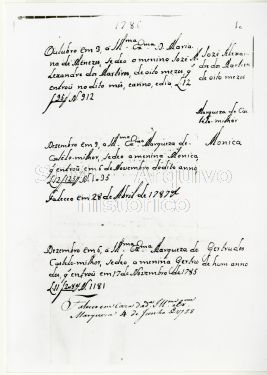 1786
Outubro em 3, a Ill.ma Ex.ma D. Maria
na de Menezes, Se deo o menino José A
lexandre da Martira, de oito mezes, q
entrou no dito mês, e anno, e dio L12
f N 912
José Alexan
dre da Martira
de oito mezes
Marqueza de Cas
telo-milhor
Dezembro em 9, a Ill.ma Ex.ma Marqueza de
Castelo-milhor, Se deo a menina Monica
q entrou em 6 de Novembro do dito anno
Monica
Faleceo em 28 de Abril de 1787
Arquivo
Histórico
Dezembro em 6, a Ill.ma Ex.ma Marqueza de
Castelo-milhor, Se deo, a menina Gertru
des, q entrou em 17 de Novembro de 1785
L11 N 1181
Gertrudes
de hum anno
Faleceo em Caza da d. Ill.ma
Marqueza 4 de Junho d 1788